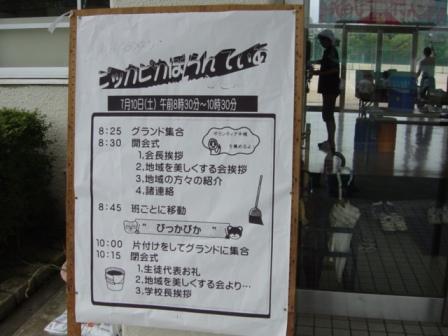 ピッカピカぼらんてぃあ
7月10日(土) 午前8時30分～10時30分
8:25 グランド集合
8:30 開会式
1,会長挨拶
2,地域を美しくする会挨拶
3,地域の方々の紹介
4,諸連絡
ボランティア手帳
を集めるよ
8:45 班ごとに移動
" ぴっかぴか "
10:00 片付けをしてグランドに集合
10:15 閉会式
1,生徒代表お礼
2,地域を美しくする会より…
3,学校長挨拶